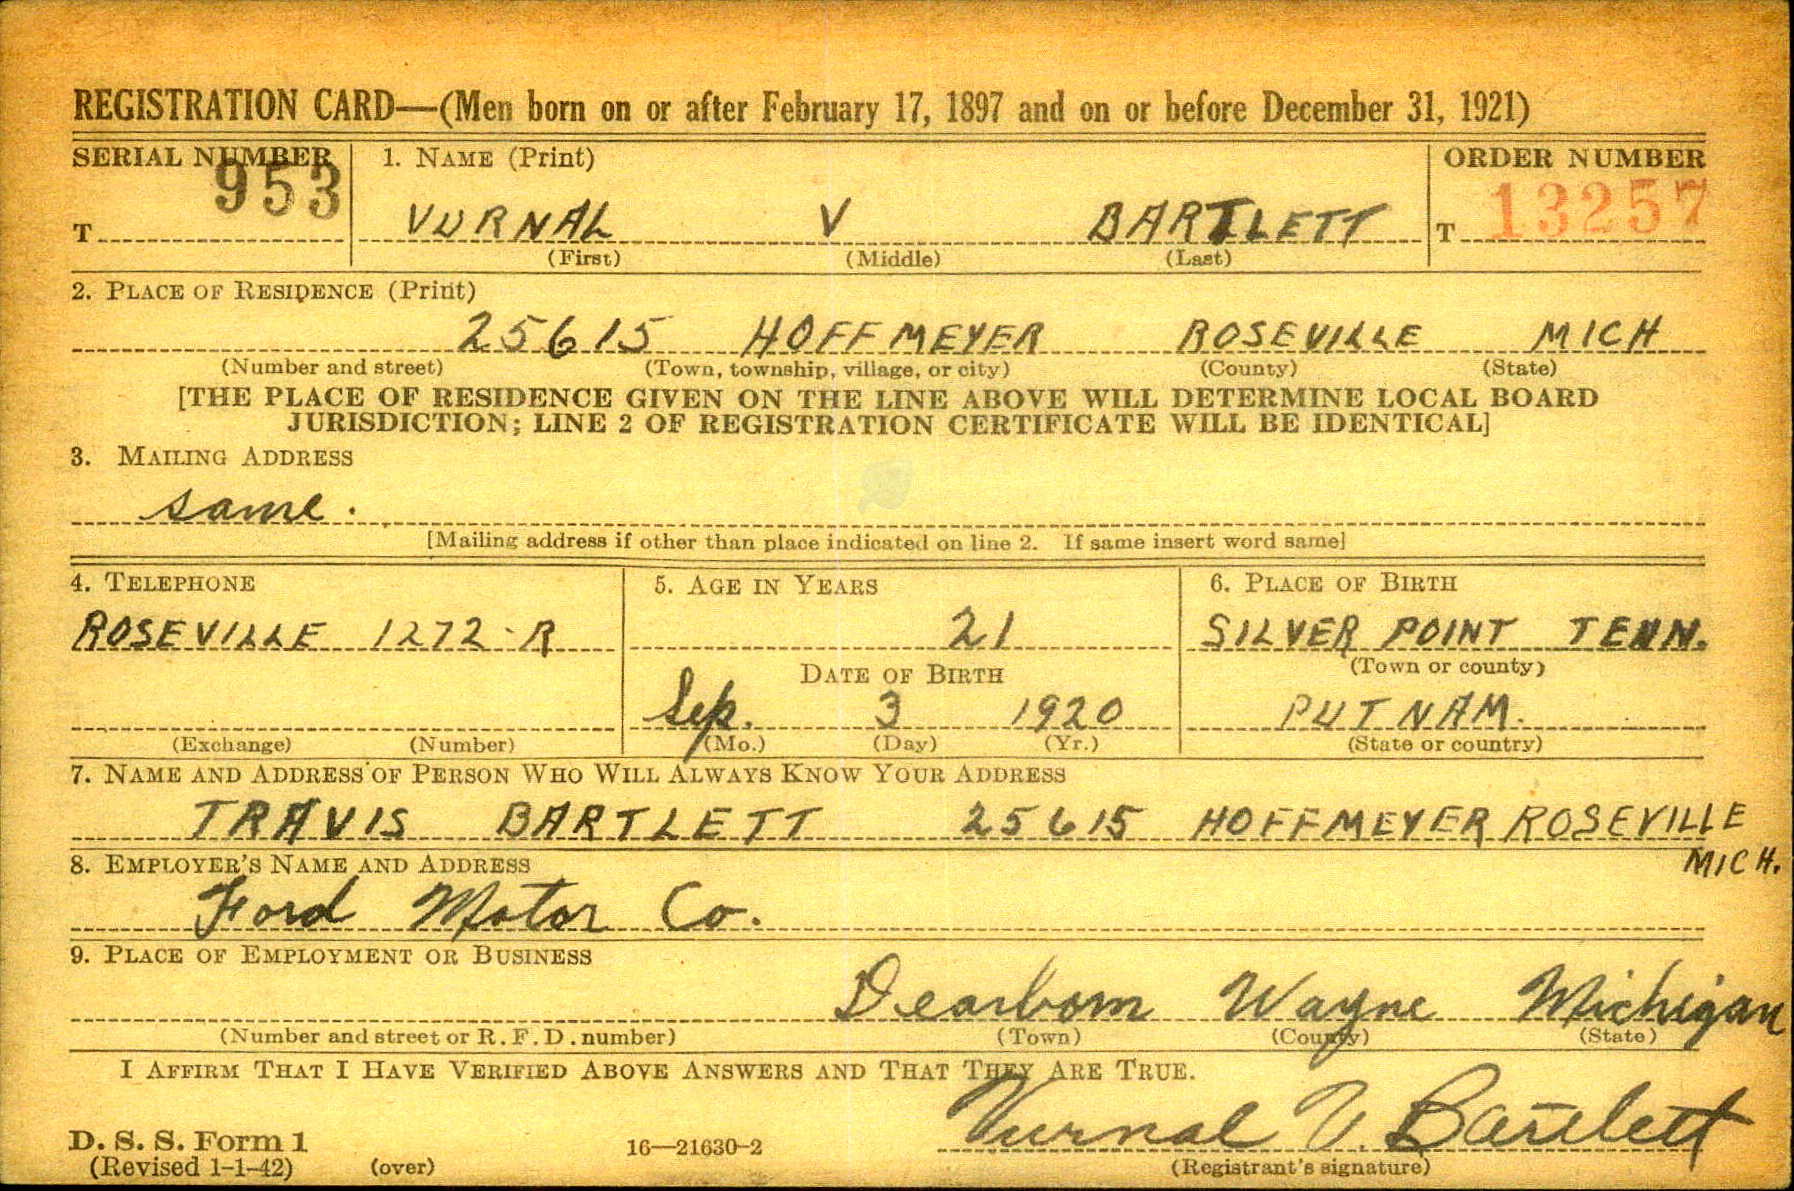 REGISTRATION CARD—(Men born on or after February 17, 1897 and on or before December 31, 1921)
SERIAL NUMBER 1. NAME (Print) ORDER NUMBER
T 953 VURNAL V BARTLETT T 13257
(First) (Middle) (Last)
2. PLACE OF RESIDENCE (Print)
25615 HOFFMEYER ROSEVILLE MICH
(Number and street) (Town, township, village, or city) (County) (State)
[THE PLACE OF RESIDENCE GIVEN ON THE LINE ABOVE WILL DETERMINE LOCAL BOARD
JURISDICTION; LINE 2 OF REGISTRATION CERTIFICATE WILL BE IDENTICAL]
3. MAILING ADDRESS
same.
[Mailing address if other than place indicated on line 2. If same insert word same]
4. TELEPHONE 5. AGE IN YEARS 6. PLACE OF BIRTH
ROSEVILLE 1272-R 21 SILVER POINT TENN.
DATE OF BIRTH (Town or county)
Sep. 3 1920 PUTNAM.
(Exchange) (Number) (Mo.) (Day) (Yr.) (State or country)
7. NAME AND ADDRESS OF PERSON WHO WILL ALWAYS KNOW YOUR ADDRESS
TRAVIS BARTLETT 25615 HOFFMEYER ROSEVILLE
MICH.
8. EMPLOYER'S NAME AND ADDRESS
Ford Motor Co.
9. PLACE OF EMPLOYMENT OR BUSINESS
Dearborn Wayne Michigan
(Number and street or R. F. D. number) (Town) (County) (State)
I AFFIRM THAT I HAVE VERIFIED ABOVE ANSWERS AND THAT THEY ARE TRUE.
Vurnal V. Bartlett
D. S. S. Form 1 16—21630-2
(Revised 1-1-42) (over) (Registrant's signature)